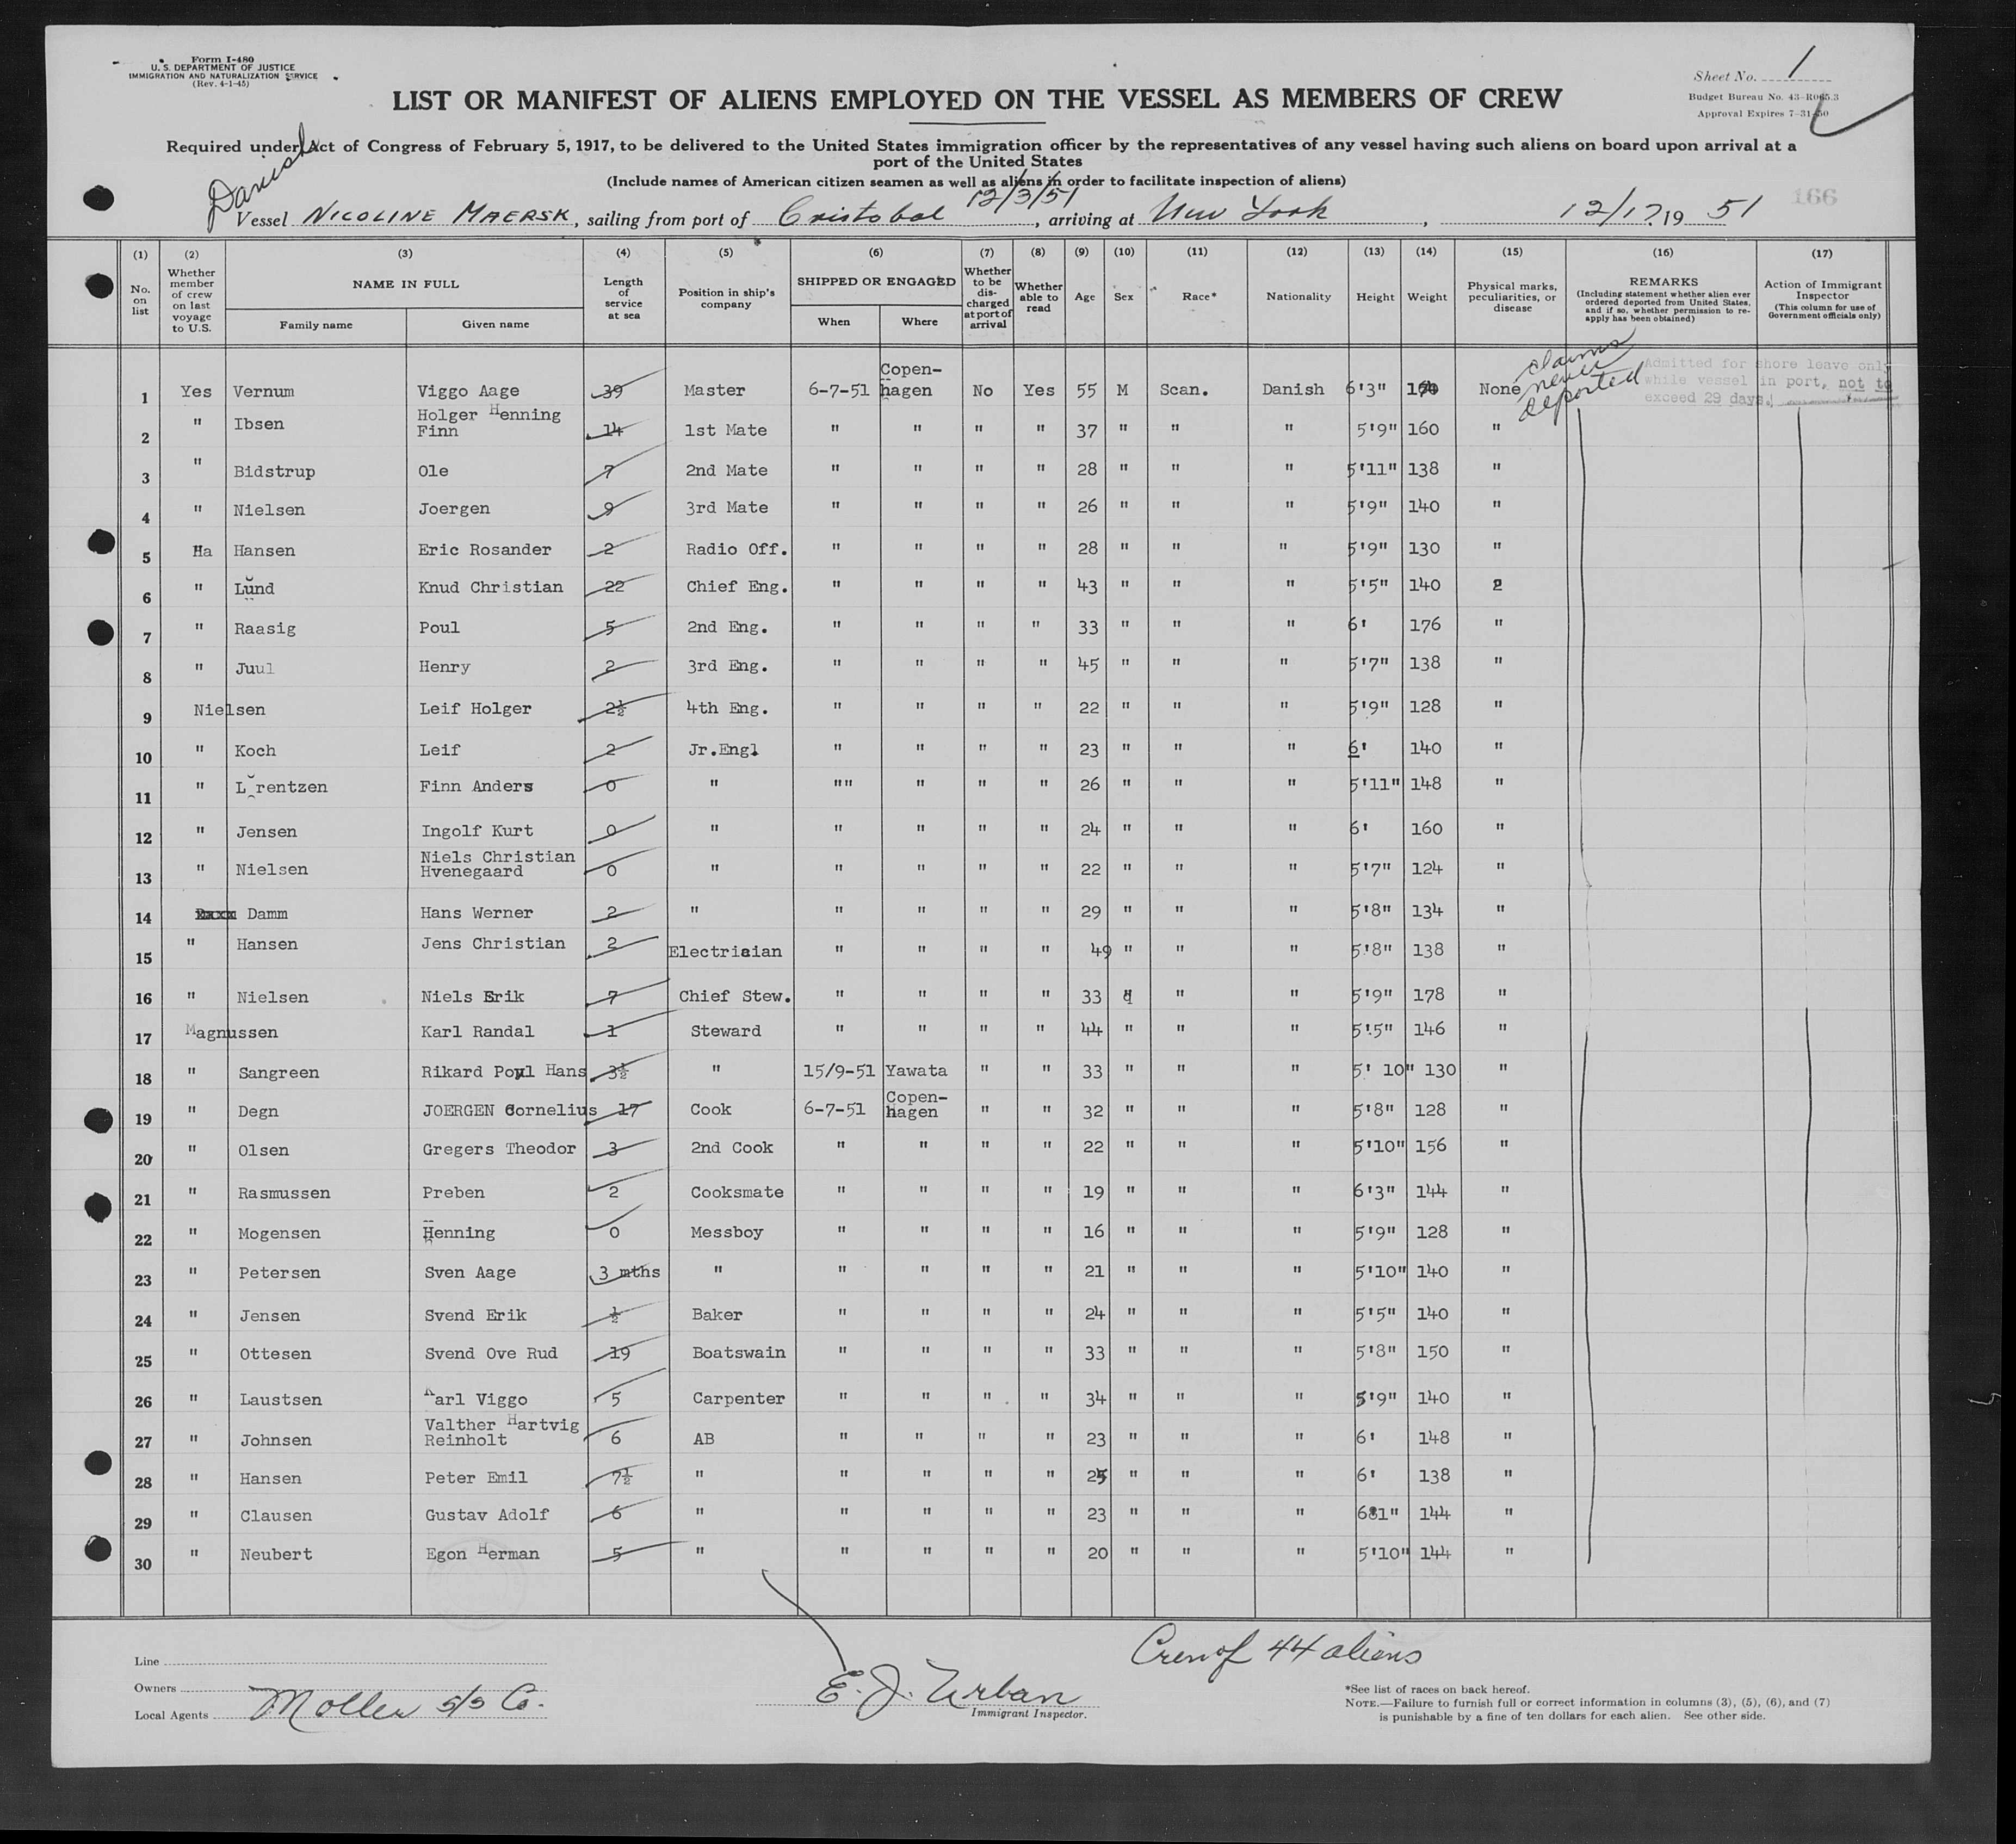 Form I-480
U. S. DEPARTMENT OF JUSTICE
IMMIGRATION AND NATURALIZATION SERVICE
(Rev. 4-1-45)
Sheet No. 1
Budget Bureau No. 43-R065.3
Approval Expires 7-31-50
LIST OR MANIFEST OF ALIENS EMPLOYED ON THE VESSEL AS MEMBERS OF CREW
Required under Act of Congress of February 5, 1917, to be delivered to the United States immigration officer by the representatives of any vessel having such aliens on board upon arrival at a
port of the United States
(Include names of American citizen seamen as well as aliens in order to facilitate inspection of aliens)
Danish
12/3/51
166
Vessel NICOLINE MAERSK, sailing from port of Cristobal, arriving at New York, 12/17 19 51
(1) (2) (3) (4) (5) (6) (7) (8) (9) (10) (11) (12) (13) (14) (15) (16) (17)
No. on list
Whether member of crew on last voyage to U.S.
NAME IN FULL
Family name Given name
Length of service at sea
Position in ship's company
SHIPPED OR ENGAGED
When Where
Whether to be discharged at port of arrival
Whether able to read
Age
Sex
Race*
Nationality
Height
Weight
Physical marks, peculiarities, or disease
REMARKS
(Including statement whether alien ever ordered deported from United States, and if so, whether permission to reapply has been obtained)
Action of Immigrant Inspector
(This column for use of Government officials only)
claims never deported
Admitted for shore leave only
while vessel in port, not to
exceed 29 days.
1 Yes Vernum Viggo Aage 39 Master 6-7-51 Copen-hagen No Yes 55 M Scan. Danish 6'3" None
2 " Ibsen Holger Henning Finn 14 1st Mate " " " " 37 " " " 5'9" 160 "
3 " Bidstrup Ole 7 2nd Mate " " " " 28 " " " 5'11" 138 "
4 " Nielsen Joergen 9 3rd Mate " " " " 26 " " " 5'9" 140 "
5 Ha Hansen Eric Rosander 2 Radio Off. " " " " 28 " " " 5'9" 130 "
6 " Lund Knud Christian 22 Chief Eng. " " " " 43 " " " 5'5" 140
7 " Raasig Poul 5 2nd Eng. " " " " 33 " " " 6' 176 "
8 " Juul Henry 2 3rd Eng. " " " " 45 " " " 5'7" 138 "
9 Nielsen Leif Holger 2½ 4th Eng. " " " " 22 " " " 5'9" 128 "
10 " Koch Leif 2 Jr.Engl " " " " 23 " " " 6' 140 "
11 " L rentzen Finn Anders 0 " "" " " " 26 " " " 5'11" 148 "
12 " Jensen Ingolf Kurt 0 " " " " " 24 " " " 6' 160 "
13 " Nielsen Niels Christian Hvenegaard 0 " " " " " 22 " " " 5'7" 124 "
14 Damm Hans Werner 2 " " " " " 29 " " " 5'8" 134 "
15 " Hansen Jens Christian 2 Electrician " " " " 49 " " " 5'8" 138 "
16 " Nielsen Niels Erik 7 Chief Stew. " " " " 33 " " 5'9" 178 "
17 Magnussen Karl Randal 1 Steward " " " " 44 " " " 5'5" 146 "
18 " Sangreen Rikard Poul Hans 3½ " 15/9-51 Yawata " " 33 " " " 5' 10" 130 "
19 " Degn JOERGEN Cornelius 17 Cook 6-7-51 Copen-hagen " " 32 " " " 5'8" 128 "
20 " Olsen Gregers Theodor 3 2nd Cook " " " " 22 " " " 5'10" 156 "
21 " Rasmussen Preben 2 Cooksmate " " " " 19 " " " 6'3" 144 "
22 " Mogensen Henning 0 Messboy " " " " 16 " " " 5'9" 128 "
23 " Petersen Sven Aage 3 mths " " " " " 21 " " " 5'10" 140 "
24 " Jensen Svend Erik ½ Baker " " " " 24 " " " 5'5" 140 "
25 " Ottesen Svend Ove Rud 19 Boatswain " " " " 33 " " " 5'8" 150 "
26 " Laustsen Karl Viggo 5 Carpenter " " " " 34 " " " 5'9" 140 "
27 " Johnsen Valther Hartvig Reinholt 6 AB " " " " 23 " " " 6' 148 "
28 " Hansen Peter Emil 7½ " " " " " 25 " " " 6' 138 "
29 " Clausen Gustav Adolf 6 " " " " " 23 " " " 6'1" 144 "
30 " Neubert Egon Herman 5 " " " " " 20 " " " 5'10" 144 "
Crew of 44 aliens
Line
Owners
Local Agents Moller S/S Co.
E. J. Urban
Immigrant Inspector.
*See list of races on back hereof.
NOTE.—Failure to furnish full or correct information in columns (3), (5), (6), and (7)
is punishable by a fine of ten dollars for each alien. See other side.